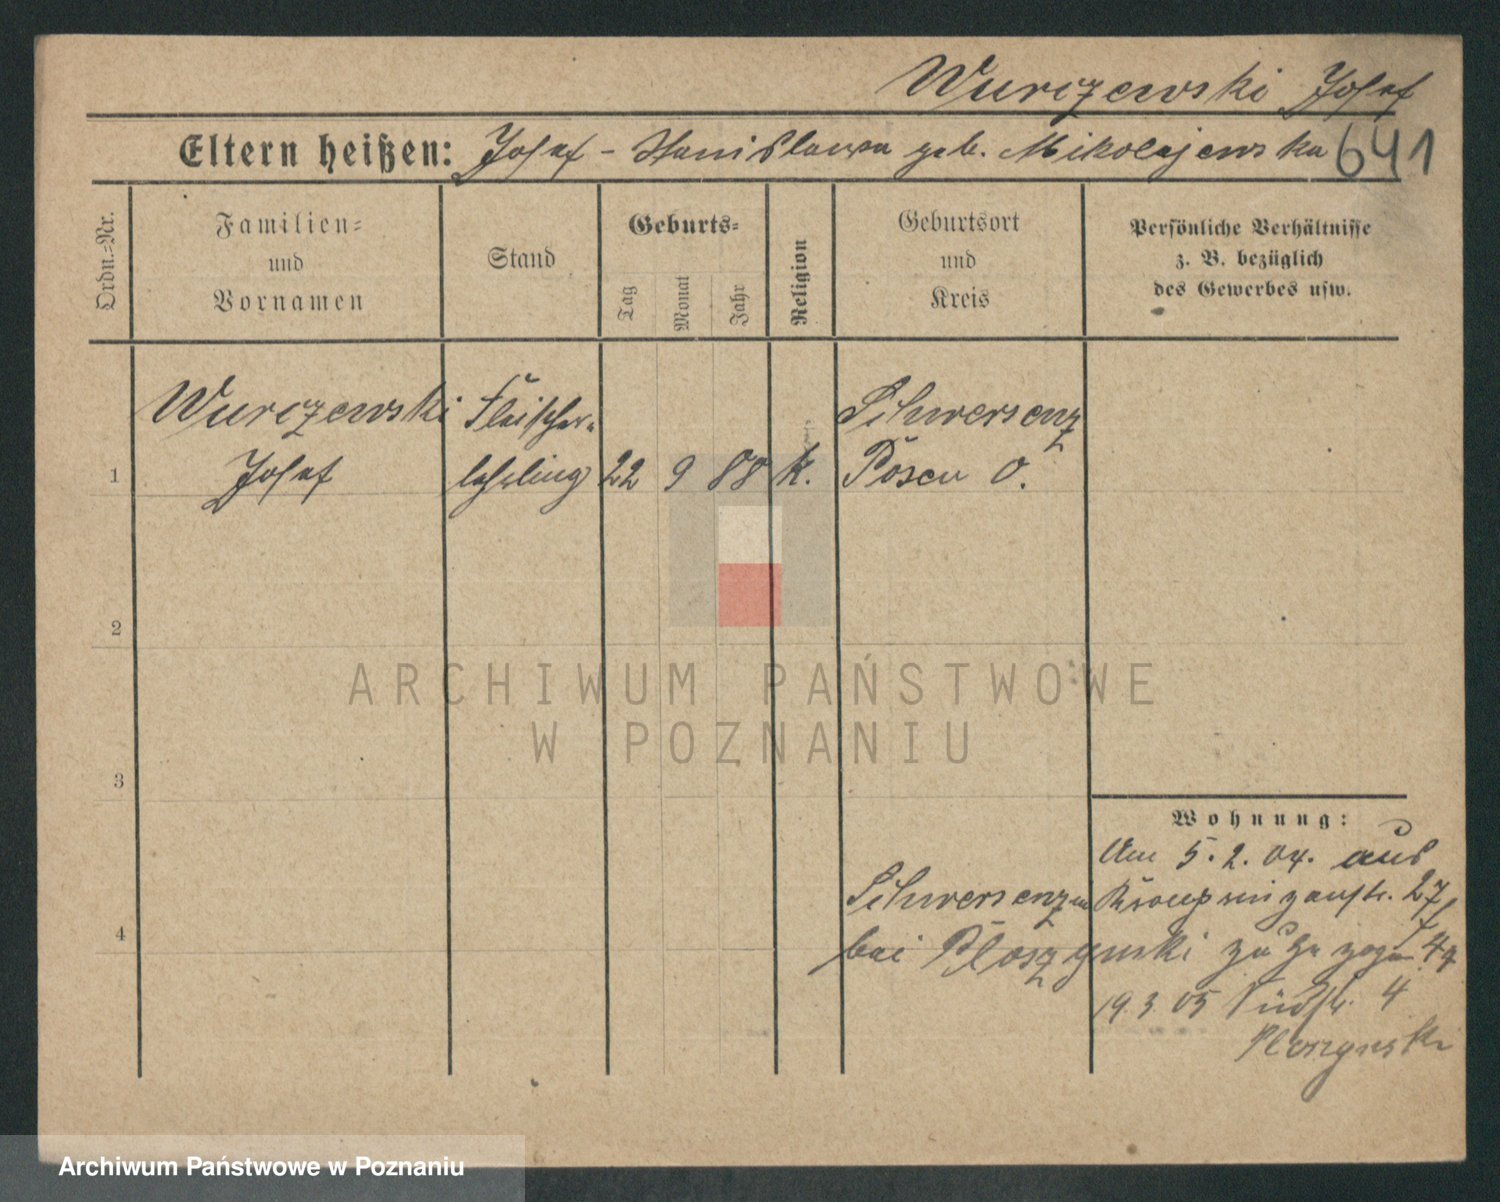 Wurczewski Josef
641
Eltern heißen: Josef - Stanislawa geb. Mikolajewska
Ordn.-Nr.
Familien-
und
Vornamen
Stand
Geburts-
Tag
Monat
Jahr
Religion
Geburtsort
und
Kreis
Persönliche Verhältnisse
z. B. bezüglich
des Gewerbes usw.
Wurczewski Fleischer- Schwersenz
1 Josef lehrling 22 9 88 k. Posen O.
2
ARCHIWUM PAŃSTWOWE
W POZNANIU
3
Wohnung:
Am 5.2.04. aus
Schwersenz Kronprinzenstr. 27
4
bei Ploszynski zugezogen
19.3.05 Südstr. 4
Ploszynski
Archiwum Państwowe w Poznaniu